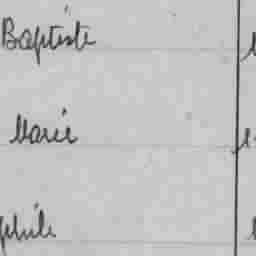 Baptiste
Marie
phile